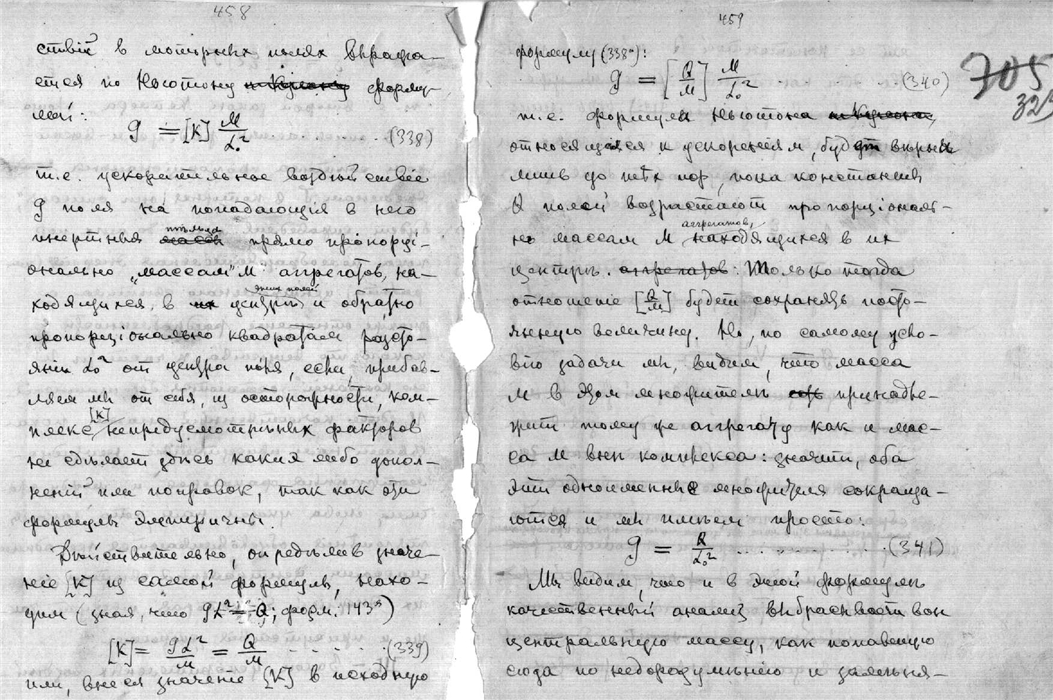 458
ствій в моторных полях выража-
ется по Ньютону формu-
лой:
g = [K] M/L₀² . . . . (338)
т.е. ускорительное воздѣйствіе
g поля на попадающія в него
инертныя тѣльца прямо пропорці-
онально „массам" M аггрегатов, на-
ходящихся, в центрѣ этих полей и обратно
пропорціонально квадратам разсто-
янія L₀² от центра поля, если прибав-
ляем мы от себя, из осторожности, ком-
плекс [K] непредусмотрѣнных факторов
не сдѣлает здѣсь какія либо допол-
неній или поправок, так как эти
формулы эмпиричны.
Дѣйствительно, опредѣлив значе-
ніе [K] из самой формулы, нахо-
дим (зная, что gL² = Q; форм. 143ᵃ)
[K] = gL²/M = Q/M - - - - - (339)
или, внеся значеніе [K] в исходную
459
формулу (338ᵃ):
g = [Q/M] M/L₀² . . . . (340)
705
т.е. формула Ньютона
относящаяся к ускореніям, будет вѣрна
лишь до тѣх пор, пока константы
Q полей возрастают пропорціональ-
но массам M аггрегатов, находящихся в их
центрѣ. Только тогда
отношеніе [Q/M] будет сохранять посто-
янную величину. Но, по самому усло-
вію задачи мы, видим, что масса
M в этом множителѣ принадле-
жит тому же аггрегату как и мас-
са M внѣ комплекса: значит, оба
эти одноименные множителя сокраща-
ются и мы имѣем просто:
g = Q/L₀² . . . . . . . (341)
Мы видим, что и в этой формулѣ
качественный анализ выбрасывает вон
центральную массу, как попавшую
сюда по недоразумѣнію и замѣня-